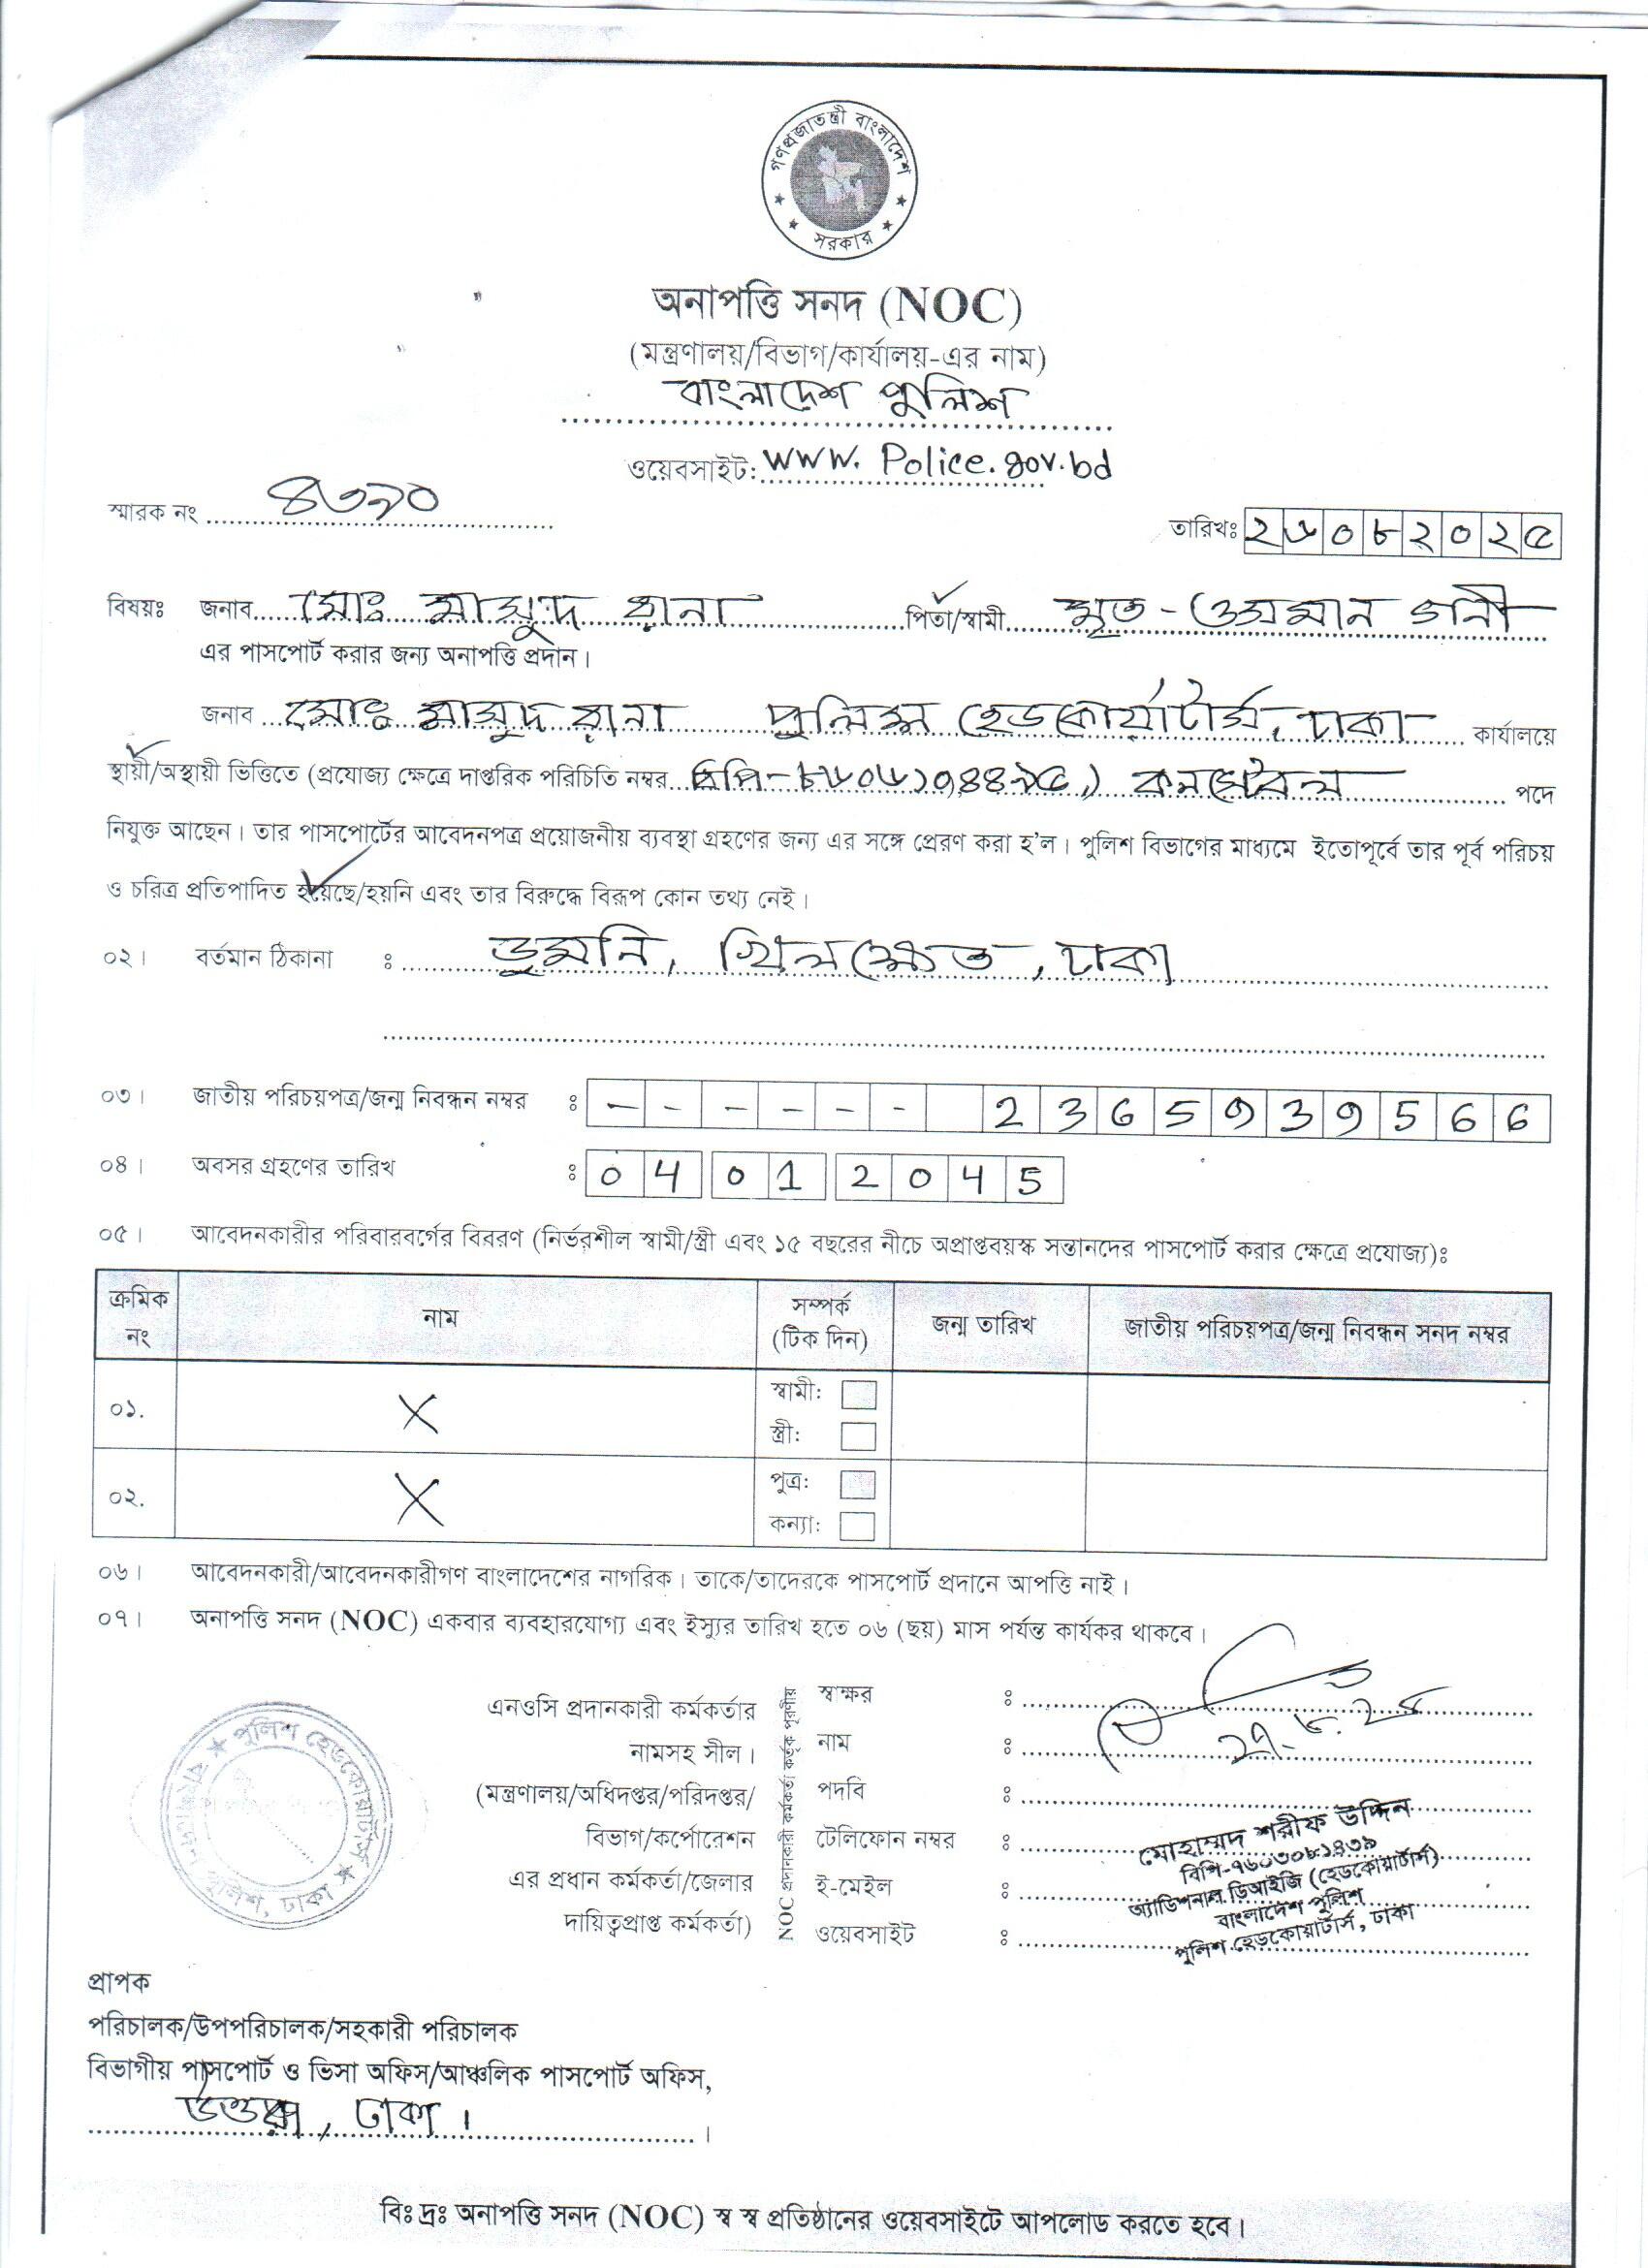 গণপ্রজাতন্ত্রী বাংলাদেশ
সরকার
অনাপত্তি সনদ (NOC)
(মন্ত্রণালয়/বিভাগ/কার্যালয়-এর নাম)
বাংলাদেশ পুলিশ
ওয়েবসাইট: www. Police.gov.bd
স্মারক নং ৪৩৯০
তারিখঃ ২৬০৮২০২৫
বিষয়ঃ জনাব মোঃ মাসুদ রানা পিতা/স্বামী মৃত - ওসমান গনী
এর পাসপোর্ট করার জন্য অনাপত্তি প্রদান।
জনাব মোঃ মাসুদ রানা পুলিশ হেডকোর্য়াটার্স, ঢাকা কার্যালয়ে
স্থায়ী/অস্থায়ী ভিত্তিতে (প্রযোজ্য ক্ষেত্রে দাপ্তরিক পরিচিতি নম্বর বিপি-৮৬০৬১৭৪৪৯৫,) কনস্টেবল পদে
নিযুক্ত আছেন। তার পাসপোর্টের আবেদনপত্র প্রয়োজনীয় ব্যবস্থা গ্রহণের জন্য এর সঙ্গে প্রেরণ করা হ'ল। পুলিশ বিভাগের মাধ্যমে ইতোপূর্বে তার পূর্ব পরিচয়
ও চরিত্র প্রতিপাদিত হয়েছে/হয়নি এবং তার বিরুদ্ধে বিরূপ কোন তথ্য নেই।
০২। বর্তমান ঠিকানা ঃ ডুমনি, খিলক্ষেত, ঢাকা
০৩। জাতীয় পরিচয়পত্র/জন্ম নিবন্ধন নম্বর ঃ - - - - - - 2365939566
০৪। অবসর গ্রহণের তারিখ ঃ 04 01 2045
০৫। আবেদনকারীর পরিবারবর্গের বিবরণ (নির্ভরশীল স্বামী/স্ত্রী এবং ১৫ বছরের নীচে অপ্রাপ্তবয়স্ক সন্তানদের পাসপোর্ট করার ক্ষেত্রে প্রযোজ্য)ঃ
ক্রমিক নং নাম সম্পর্ক (টিক দিন) জন্ম তারিখ জাতীয় পরিচয়পত্র/জন্ম নিবন্ধন সনদ নম্বর
০১. X স্বামী:
স্ত্রী:
০২. X পুত্র:
কন্যা:
০৬। আবেদনকারী/আবেদনকারীগণ বাংলাদেশের নাগরিক। তাকে/তাদেরকে পাসপোর্ট প্রদানে আপত্তি নাই।
০৭। অনাপত্তি সনদ (NOC) একবার ব্যবহারযোগ্য এবং ইস্যুর তারিখ হতে ০৬ (ছয়) মাস পর্যন্ত কার্যকর থাকবে।
এনওসি প্রদানকারী কর্মকর্তার
নামসহ সীল।
(মন্ত্রণালয়/অধিদপ্তর/পরিদপ্তর/
বিভাগ/কর্পোরেশন
এর প্রধান কর্মকর্তা/জেলার
দায়িত্বপ্রাপ্ত কর্মকর্তা)
NOC প্রদানকারী কর্মকর্তা কর্তৃক পূরণীয়
স্বাক্ষর ঃ
২৭.৮.২৫
নাম ঃ
পদবি ঃ
টেলিফোন নম্বর ঃ
ই-মেইল ঃ
ওয়েবসাইট ঃ
মোহাম্মদ শরীফ উদ্দিন
বিপি-৭৬০৩০৮১৪৩৯
অ্যাডিশনাল ডিআইজি (হেডকোয়ার্টার্স)
বাংলাদেশ পুলিশ
পুলিশ হেডকোয়ার্টার্স, ঢাকা
পুলিশ হেডকোয়ার্টার্স
বাংলাদেশ পুলিশ, ঢাকা
প্রাপক
পরিচালক/উপপরিচালক/সহকারী পরিচালক
বিভাগীয় পাসপোর্ট ও ভিসা অফিস/আঞ্চলিক পাসপোর্ট অফিস,
উত্তরা, ঢাকা।
বিঃ দ্রঃ অনাপত্তি সনদ (NOC) স্ব স্ব প্রতিষ্ঠানের ওয়েবসাইটে আপলোড করতে হবে।